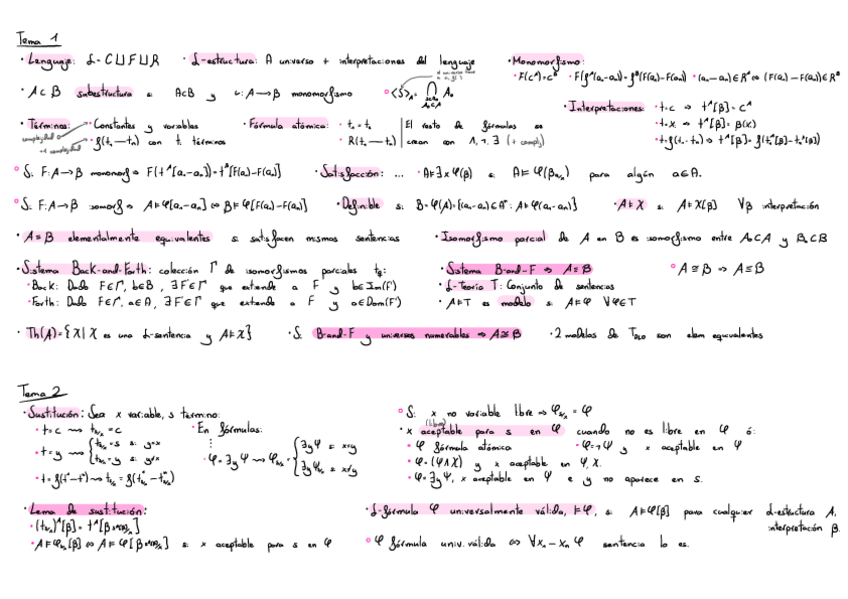 Tema 1
· Lenguaje: L = C ⊔ F ⊔ R · L-estructura: A universo + interpretaciones del lenguaje · Monomorfismo:
· F(c^A)=c^B · F(f^A(a₁-aₙ))=f^B(F(a₁)-F(aₙ)) · (a₁-aₙ)∈R^A ⇔ (F(a₁)-F(aₙ))∈R^B
· A ⊂ B subestructura si A⊂B y ι: A→B monomorfismo
· Interpretaciones: · t=c ⇒ t^A[β]=c^A
· t=x ⇒ t^A[β]=β(x)
· t=f(t₁-tₙ) ⇒ t^A[β]=f(t₁^A[β]-tₙ^A[β])
· Términos: · Constantes y variables
· f(t₁-tₙ) con tᵢ términos
· Fórmula atómica: · t₁=t₂
· R(t₁-tₙ)
El resto de fórmulas se
crean con ∧, ¬, ∃ (+ comply)
∘ Si F: A→B monomorf ⇒ F(t^A[a₁-aₙ])=t^B[F(a₁)-F(aₙ)] · Satisfacción: ... · A⊨∃xφ(β) si A⊨φ(β a/x) para algún a∈A.
∘ Si F: A→B isomorf ⇒ A⊨φ[a₁-aₙ] ⇔ B⊨φ[F(a₁)-F(aₙ)] · Definible si B=φ(A)={(a₁-aₙ)∈Aⁿ: A⊨φ(a₁-aₙ)} · A⊨χ si A⊨χ[β] ∀β interpretación
· A≡B elementalmente equivalentes si satisfacen mismas sentencias · Isomorfismo parcial de A en B es isomorfismo entre A₀⊂A y B₀⊂B
· Sistema Back-and-Forth: colección Γ de isomorfismos parciales tq: · Sistema B-and-F ⇒ A≡B ∘ A≅B ⇒ A≡B
· Back: Dado F∈Γ, b∈B, ∃F'∈Γ que extiende a F y b∈Im(F') · L-Teoría T: Conjunto de sentencias
· Forth: Dado F∈Γ, a∈A, ∃F'∈Γ que extiende a F y a∈Dom(F') · A⊨T es modelo si A⊨φ ∀φ∈T
· Th(A)={χ | χ es una L-sentencia y A⊨χ} · Si B-and-F y universos numerables ⇒ A≅B · 2 modelos de son elem equivalentes
Tema 2
· Sustitución: Sea x variable, s término:
· t=c ⇝ t s/x = c
· t=y ⇝ { t s/x = s si y=x
t s/x = y si y≠x
· En fórmulas:
⋮
· φ=∃yψ ⇝ φ s/x = { ∃yψ si x=y
∃yψ s/x si x≠y
∘ Si x no variable libre ⇒ φ s/x = φ
(libre)
· x aceptable para s en φ cuando no es libre en φ ó:
· φ fórmula atómica · φ=¬ψ y x aceptable en ψ
· φ=(ψ∧χ) y x aceptable en ψ, χ.
· φ=∃yψ, x aceptable en ψ e y no aparece en s.
· Lema de sustitución:
· L-fórmula φ universalmente válida, ⊨φ, si A⊨φ[β] para cualquier L-estructura A,
interpretación β.
· A⊨φ s/x [β] ⇔ A⊨φ[β s^A[β]/x] si x aceptable para s en φ
∘ φ fórmula univ. válida ⇔ ∀x₁-xₙ φ sentencia lo es.